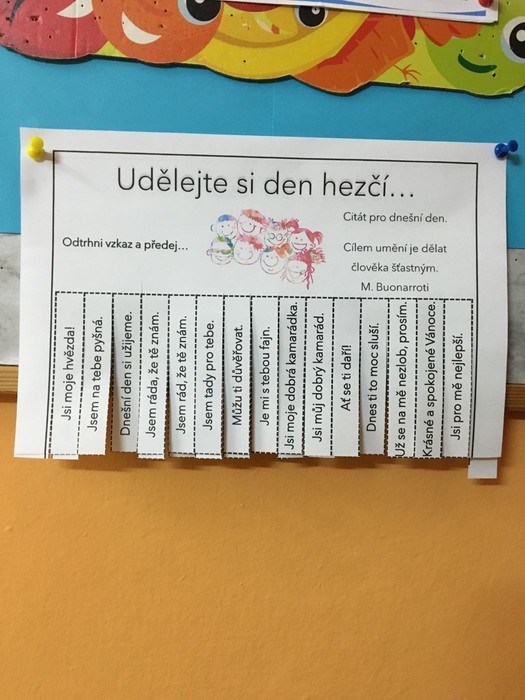 Udělejte si den hezčí...
Citát pro dnešní den.
Odtrhni vzkaz a předej...
Cílem umění je dělat
člověka šťastným.
M. Buonarroti
Jsi moje hvězda!
Jsem na tebe pyšná.
Dnešní den si užijeme.
Jsem ráda, že tě znám.
Jsem rád, že tě znám.
Jsem tady pro tebe.
Můžu ti důvěřovat.
Je mi s tebou fajn.
Jsi moje dobrá kamarádka.
Jsi můj dobrý kamarád.
Ať se ti daří!
Dnes ti to moc sluší.
Už se na mě nezlob, prosím.
Krásné a spokojené Vánoce.
Jsi pro mě nejlepší.